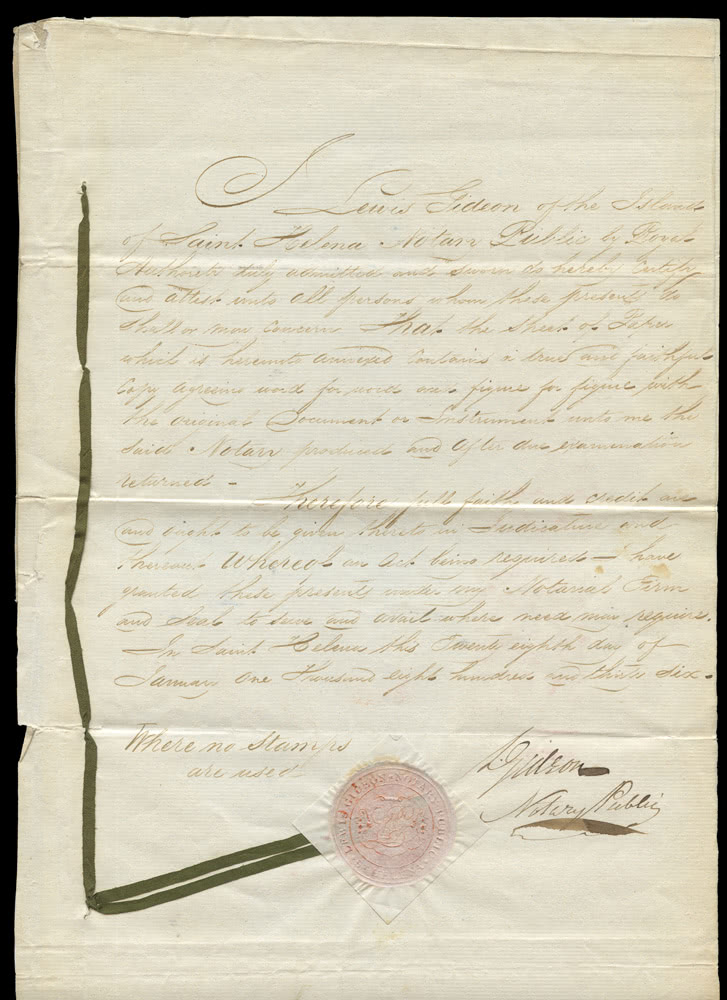 I Lewis Gideon of the Island
of Saint Helena Notary Public by Royal
Authority duly admitted and sworn do hereby Certify
and attest unto all persons whom these presents do
shall or may Concern That the Sheet of Paper
which is hereunto annexed Contains a true and faithful
Copy agreeing word for word and figure for figure with
the original Document or Instrument unto me the
said Notary produced and after due examination
returned -
Therefore full faith and credit are
and ought to be given thereto in Judicature and
thereout Whereof an Act being required I have
granted these presents under my Notarial Firm
and Seal to serve and avail where need may require.
In Saint Helena this Twenty eighth day of
January One Thousand eight hundred and thirty six.
Where no Stamps
are used
L Gideon
Notary Public
LEWIS GIDEON NOTARY PUBLIC